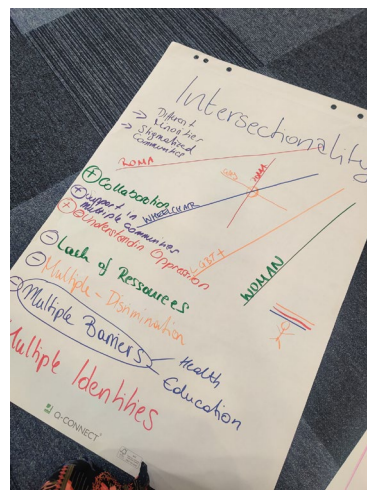 Intersectionality
→ Different
Minorities
→ Stigmatized
Communities
ROMA
WHEELCHAIR
LGBT+
WOMAN
+ Collaboration
+ Support in
Multiple Communities
+ Understandin Oppression
- Lack of Ressources
- Multiple-Discrimination
- Multiple Barriers
Health
Education
Multiple Identities
Q-CONNECT